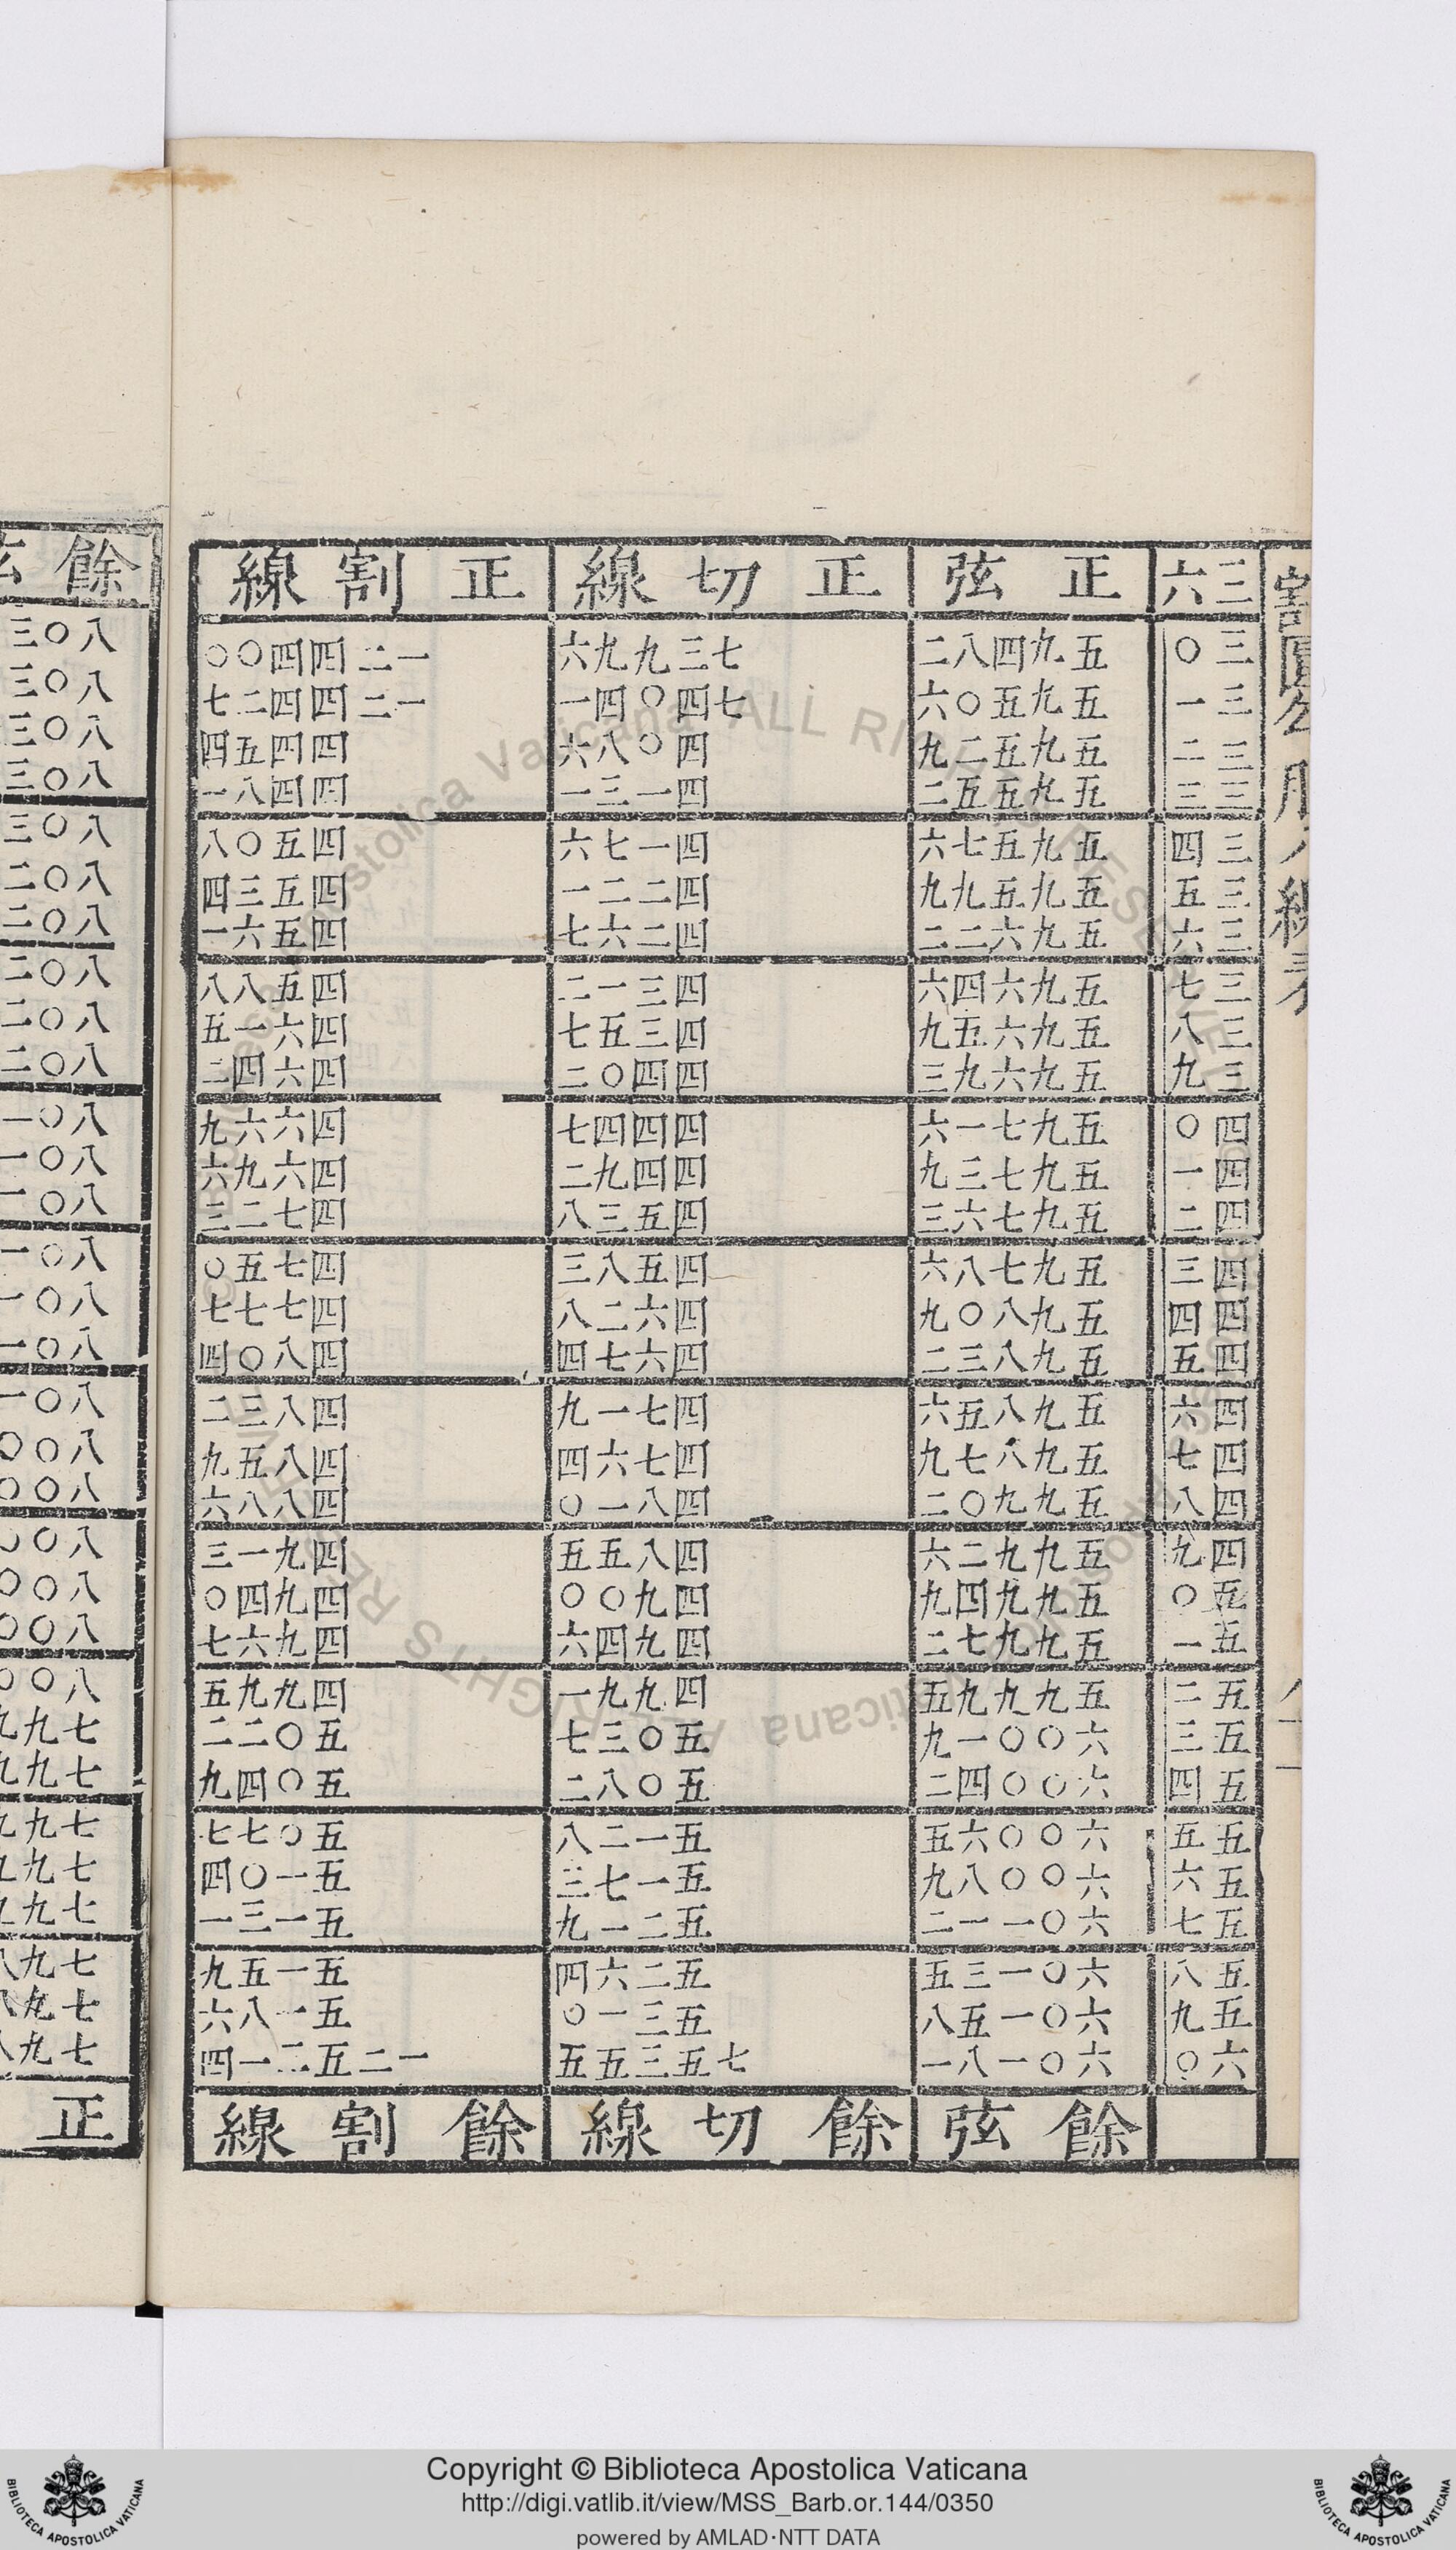 割圓勾股八線表
三六 正弦 正切線 正割線
三〇 五九四八二 七三九九六 一二四四〇〇
三一 五九五〇六 七四〇四一 一二四四二七
三二 五九五二九 四〇八六 四四五四
三三 五九五五二 四一三一 四四八一
三四 五九五七六 四一七六 四五〇八
三五 五九五九九 四二二一 四五三四
三六 五九六二二 四二六七 四五六一
三七 五九六四六 四三一二 四五八八
三八 五九六六九 四三五七 四六一五
三九 五九六九三 四四〇二 四六四二
四〇 五九七一六 四四四七 四六六九
四一 五九七三九 四四九二 四六九六
四二 五九七六三 四五三八 四七二三
四三 五九七八六 四五八三 四七五〇
四四 五九八〇九 四六二八 四七七七
四五 五九八三二 四六七四 四八〇四
四六 五九八五六 四七一九 四八三二
四七 五九八七九 四七六四 四八五九
四八 五九九〇二 四八一〇 四八八六
四九 五九九二六 四八五五 四九一三
五〇 五九九四九 四九〇〇 四九四〇
五一 五九九七二 四九四六 四九六七
五二 五九九九五 四九九一 四九九五
五三 六〇〇一九 五〇三七 五〇二二
五四 六〇〇四二 五〇八二 五〇四九
五五 六〇〇六五 五一二八 五〇七七
五六 六〇〇八九 五一七三 五一〇四
五七 六〇一一二 五二一九 五一三一
五八 六〇一三五 五二六四 五一五九
五九 六〇一五八 五三一〇 五一八六
六〇 六〇一八一 七五三五五 一二五二一四
餘弦 餘切線 餘割線
餘弦
八〇三
八〇三
八〇三
八〇三
八〇三
八〇二
八〇二
八〇二
八〇二
八〇二
八〇一
八〇一
八〇一
八〇一
八〇一
八〇一
八〇一
八〇〇
八〇〇
八〇〇
八〇〇
八〇〇
八〇〇
七九九
七九九
七九九
七九九
七九九
七九八
七九八
七九八
正
Copyright © Biblioteca Apostolica Vaticana
http://digi.vatlib.it/view/MSS_Barb.or.144/0350
powered by AMLAD·NTT DATA